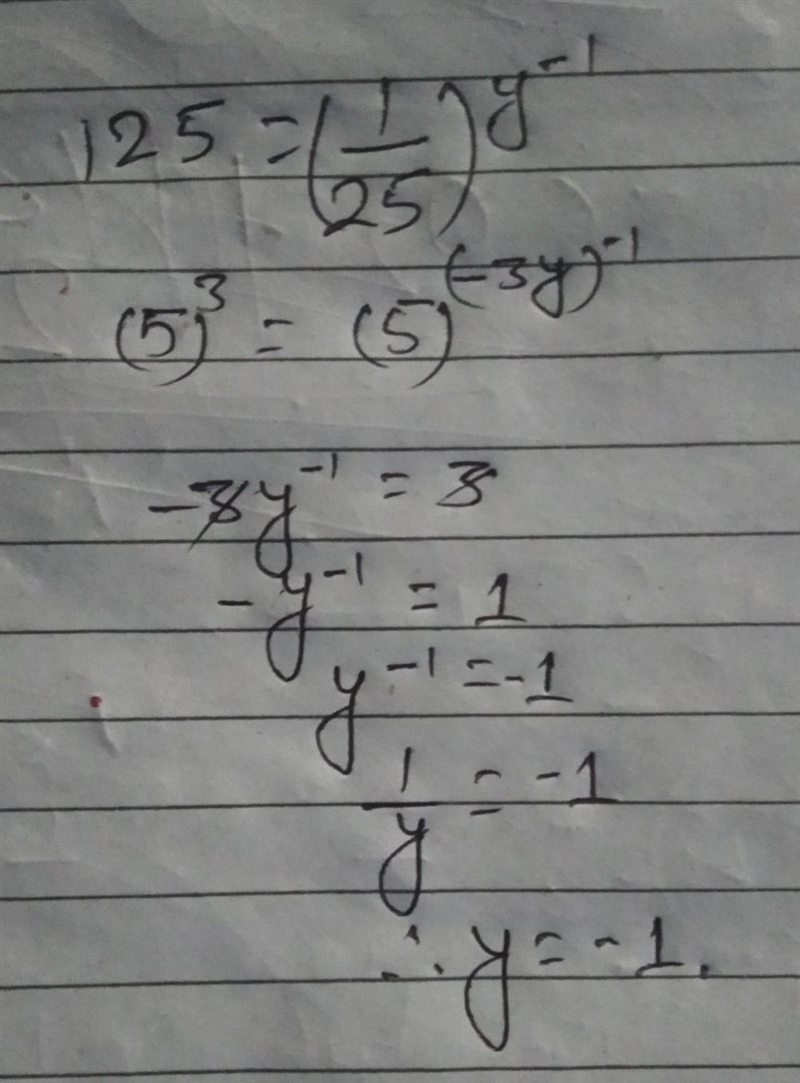 125 = (1/25)^y^-1
(5)^3 = (5)^(-3y)^-1
-3y^-1 = 3
-y^-1 = 1
y^-1 = -1
1/y = -1
∴ y = -1.